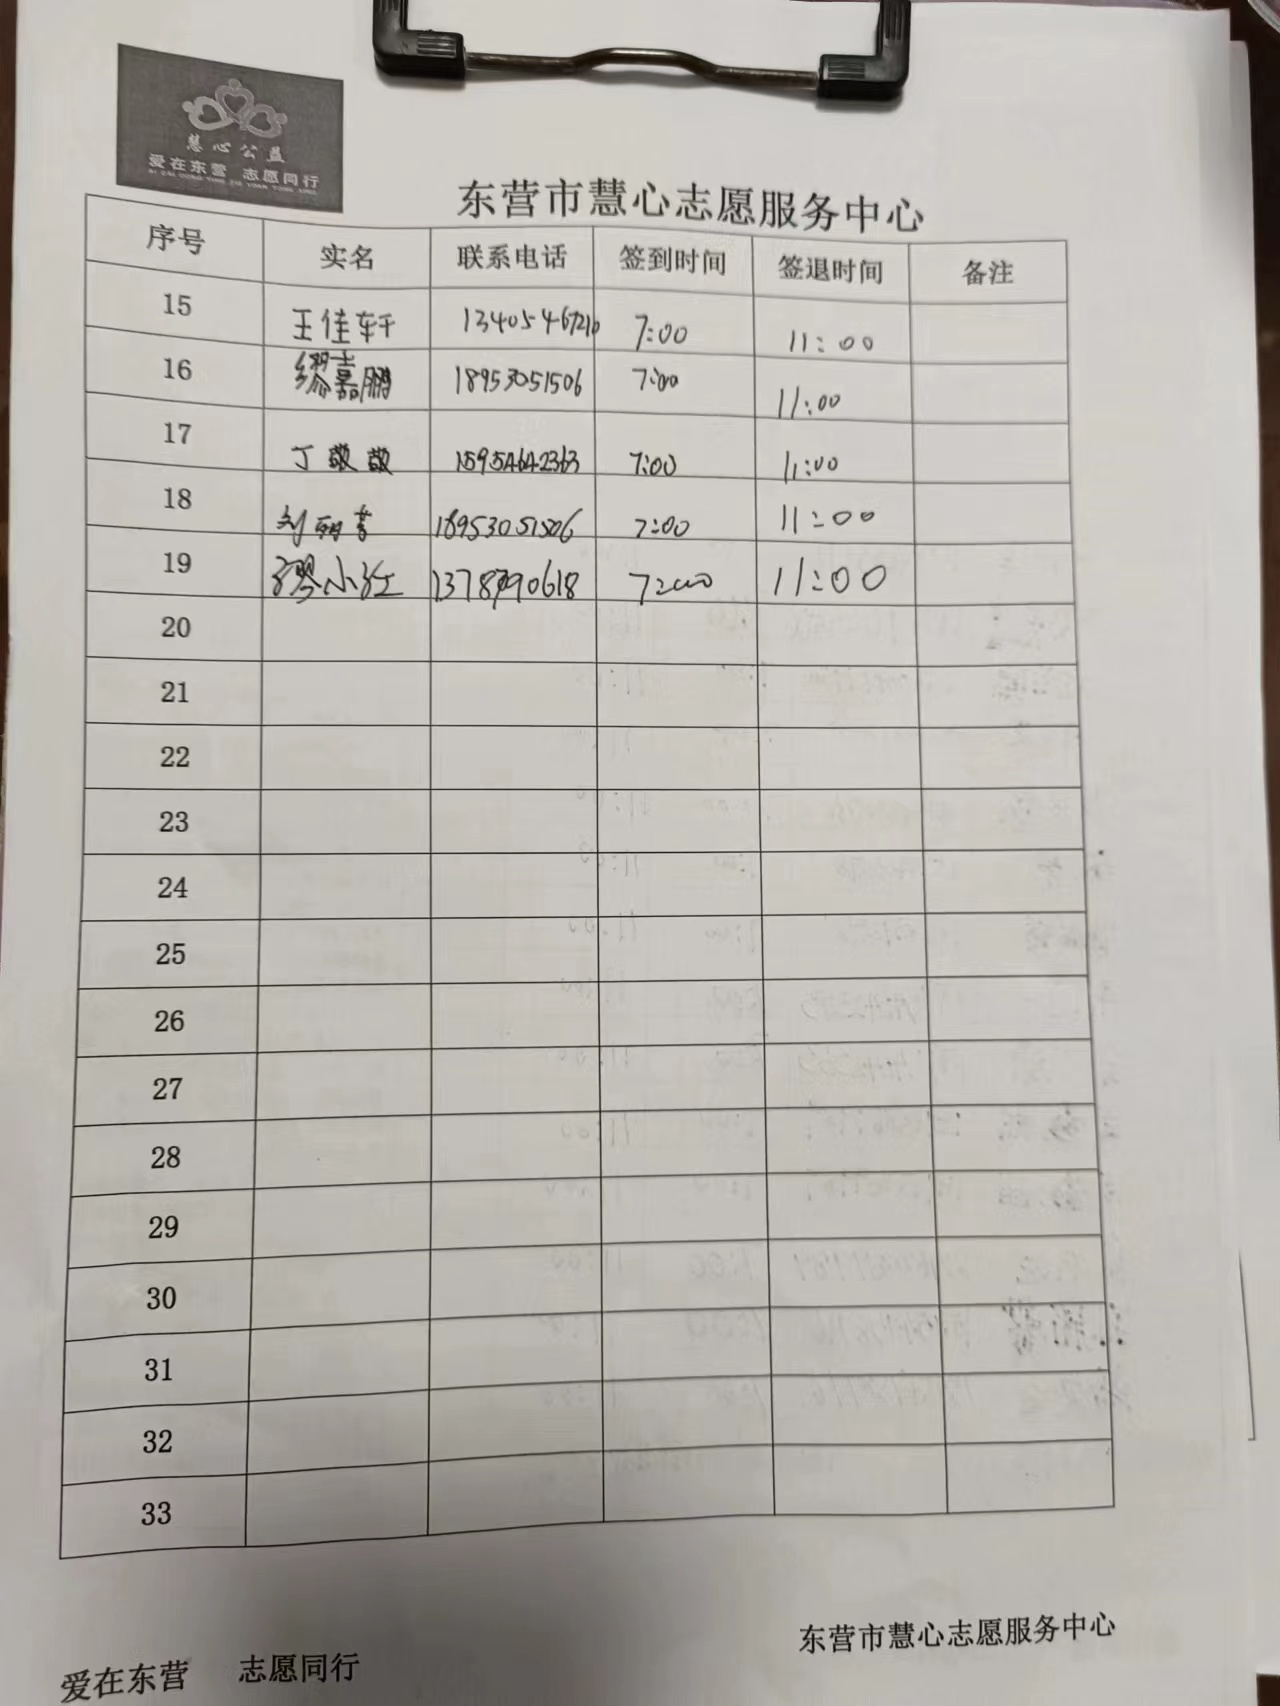 慧心公益
爱在东营 志愿同行
AI ZAI DONG YING ZHI YUAN TONG XING
东营市慧心志愿服务中心
序号 实名 联系电话 签到时间 签退时间 备注
15 王佳轩 13405467210 7:00 11:00
16 缪嘉鹏 18953051506 7:00 11:00
17 丁敬敬 15954642363 7:00 11:00
18 刘丽芳 18953051506 7:00 11:00
19 缪小红 7:00 11:00
20
21
22
23
24
25
26
27
28
29
30
31
32
33
东营市慧心志愿服务中心
爱在东营 志愿同行